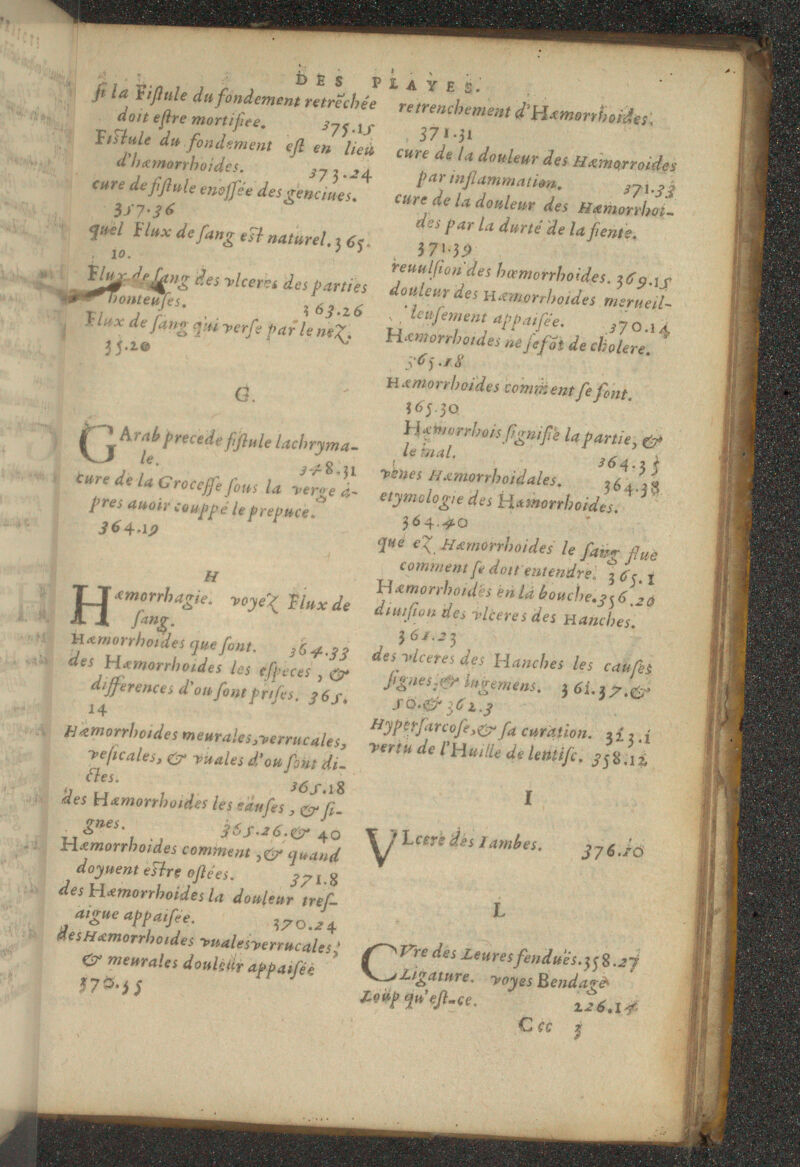 DES PLAYES.
ſi la Fiſtule du fondement retrẽchée
doit eſtre mortifiee. 375.15
Fiſtule du fondement eſt en lieu
d'hæmorrhoides. 373.24
cure de fiſtule enoſſée des genciues.
357.36
quel Flux de ſang eſt naturel. 365.
10.
Flux de ſang des vlceres des parties
honteuſes. 363.26
Flux de ſang qui verſe par le neẓ.
35.20
G.
GArab precede fiſtule lachryma-
le. 348.31
cure de la Groceſſe ſous la verge a-
pres auoir couppé le prepuce.
364.19
H
Hæmorrhagie. voyeẓ Flux de
ſang.
Hæmorrhoides que ſont. 364.33
des Hæmorrhoides les eſpeces, &
differences d'ou ſont priſes. 365.
14
Hæmorrhoides meurales, verrucales,
veſicales, & vuales d'ou ſont di-
ctes. 365.18
des Hæmorrhoides les cauſes, & ſi-
gnes. 365.26.& 40
Hæmorrhoides comment, & quand
doyuent eſtre oſtées. 371.8
des Hæmorrhoides la douleur treſ-
aigue appaiſée. 370.24
des Hæmorrhoides vuales verrucales,
& meurales douleur appaiſée
370.35
retrenchement d'Hæmorrhoides.
371.31
cure de la douleur des Hæmorroides
par inflammation. 371.33
cure de la douleur des Hæmorrhoi-
des par la durté de la fiente.
371.39
reuulſion des hœmorrhoides. 369.15
douleur des Hæmorrhoides merueil-
leuſement appaiſée. 370.14
Hæmorrhoides ne ſe fõt de cholere.
365.18
Hæmorrhoides comment ſe font.
365.30
Hæmorrhois ſignifie la partie, &
le mal. 364.35
venes Hæmorrhoidales. 364.38
etymologie des Hæmorrhoides.
364.40
que eẓ Hæmorrhoides le ſang flue
comment ſe doit entendre. 365.1
Hæmorrhoides en la bouche. 356.20
diuiſion des vlceres des Hanches.
361.23
des vlceres des Hanches les cauſes
ſignes, & iugemens. 361.37.&
50.& 362.3
Hyperſarcoſe, & ſa curation. 313.1
vertu de l'Huille de lentiſc. 358.12
I
VLcere des Iambes. 376.10
L
CVre des Leures fenduës. 358.27
Ligature. voyes Bendage
Loup qu'eſt-ce. 226.14
Ccc 3